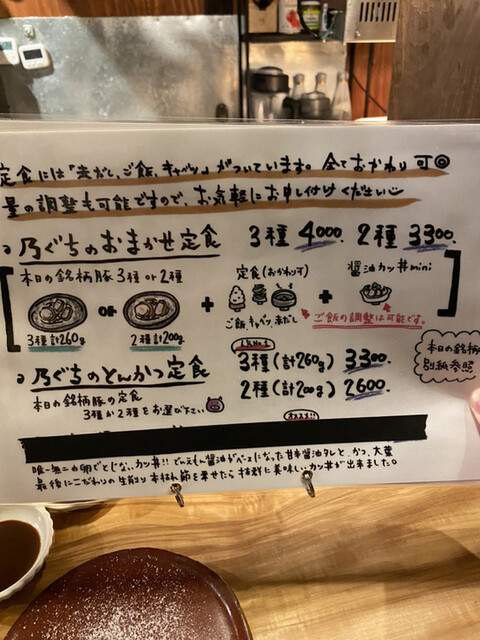 定食には「赤だし、ご飯、キャベツ」がついています。全ておかわり可◎
量の調整も可能ですので、お気軽にお申し付けください
乃ぐちのおまかせ定食 3種 4000. 2種 3300.
本日の銘柄豚3種or2種
定食(おかわり可)
醤油カツ丼mini
or + +
3種計260g
2種計200g
ご飯、キャベツ、赤だし
ご飯の調整は可能です。
本日の銘柄
別紙参照
人気No.1
乃ぐちのとんかつ定食 3種(計260g) 3300.
本日の銘柄豚の定食 2種(計200g) 2600.
3種か2種をお選び下さい
オススメ!!
唯一無二の卵でとじない、カツ丼!!でんえん醤油がベースになった甘辛醤油タレと、かつ、大葉
最後にこだわりの生削り本枯れ節を乗せたら抜群に美味しいカツ丼が出来ました。